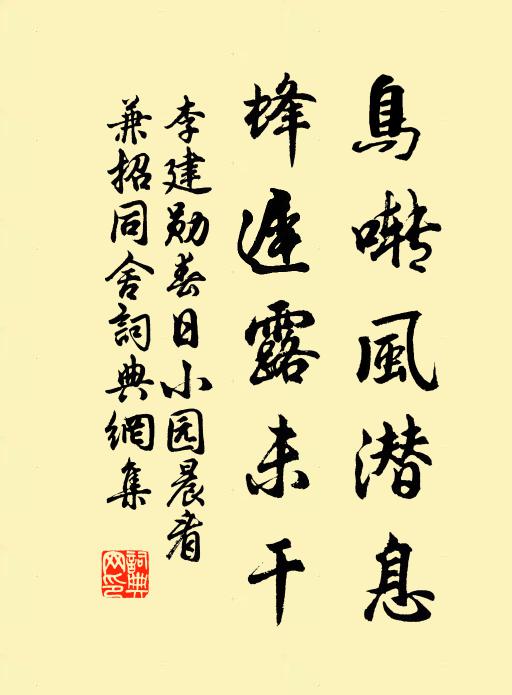 鳥囀風潜息
蜂遲露未干
李建勋春日小园晨看
兼招同舍詞典網集
詞典網印